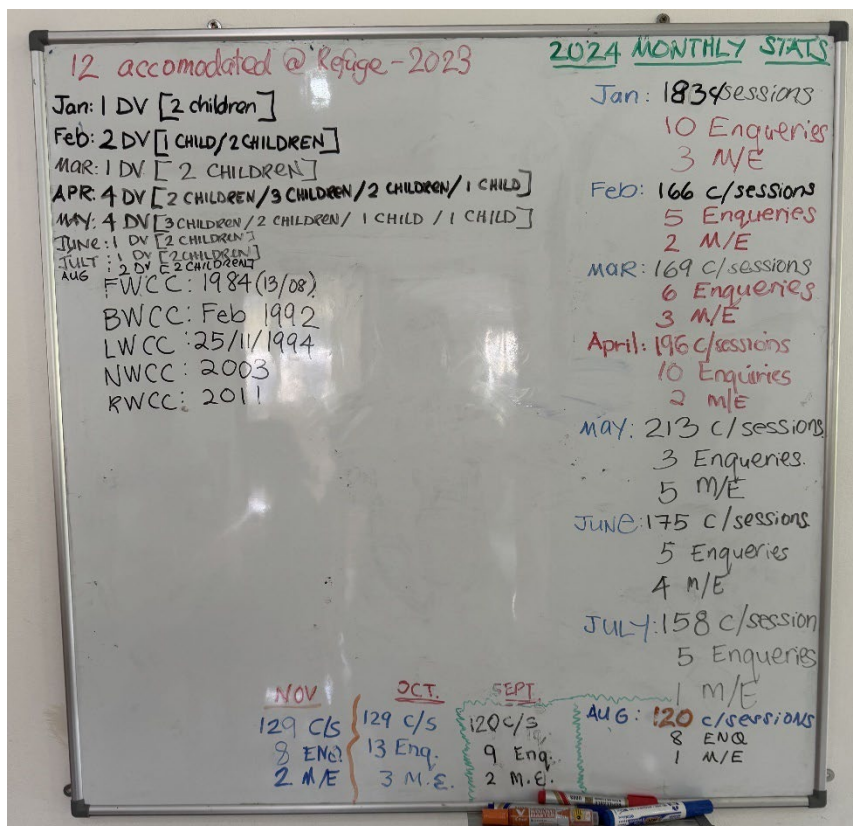 12 accomodated @ Refuge - 2023
Jan: 1 DV [2 children]
Feb: 2 DV [1 CHILD/2 CHILDREN]
MAR: 1 DV [2 CHILDREN]
APR: 4 DV [2 CHILDREN/3 CHILDREN/2 CHILDREN/1 CHILD]
MAY: 4 DV [3 CHILDREN/2 CHILDREN/1 CHILD/1 CHILD]
JUNE: 1 DV [2 CHILDREN]
JULY: 1 DV [2 CHILDREN]
AUG: 2 DV [2 CHILDREN]
FWCC: 1984 (13/08)
BWCC: Feb 1992
LWCC: 25/11/1994
NWCC: 2003
RWCC: 2011
2024 MONTHLY STATS
Jan: 183 c/sessions
10 Enqueries
3 M/E
Feb: 166 c/sessions
5 Enqueries
2 M/E
Mar: 169 c/sessions
6 Enqueries
3 M/E
April: 196 c/sessions
10 Enquiries
2 M/E
May: 213 c/sessions
3 Enqueries.
5 M/E
JUNE: 175 c/sessions
5 Enqueries
4 M/E
JULY: 158 c/session
5 Enqueries
1 M/E
AUG: 120 c/sessions
8 ENQ
1 M/E
SEPT.
120 c/s
9 Enq.
2 M.E.
OCT.
129 c/s
13 Enq.
3 M.E.
NOV
129 C/S
8 ENQ.
2 M/E